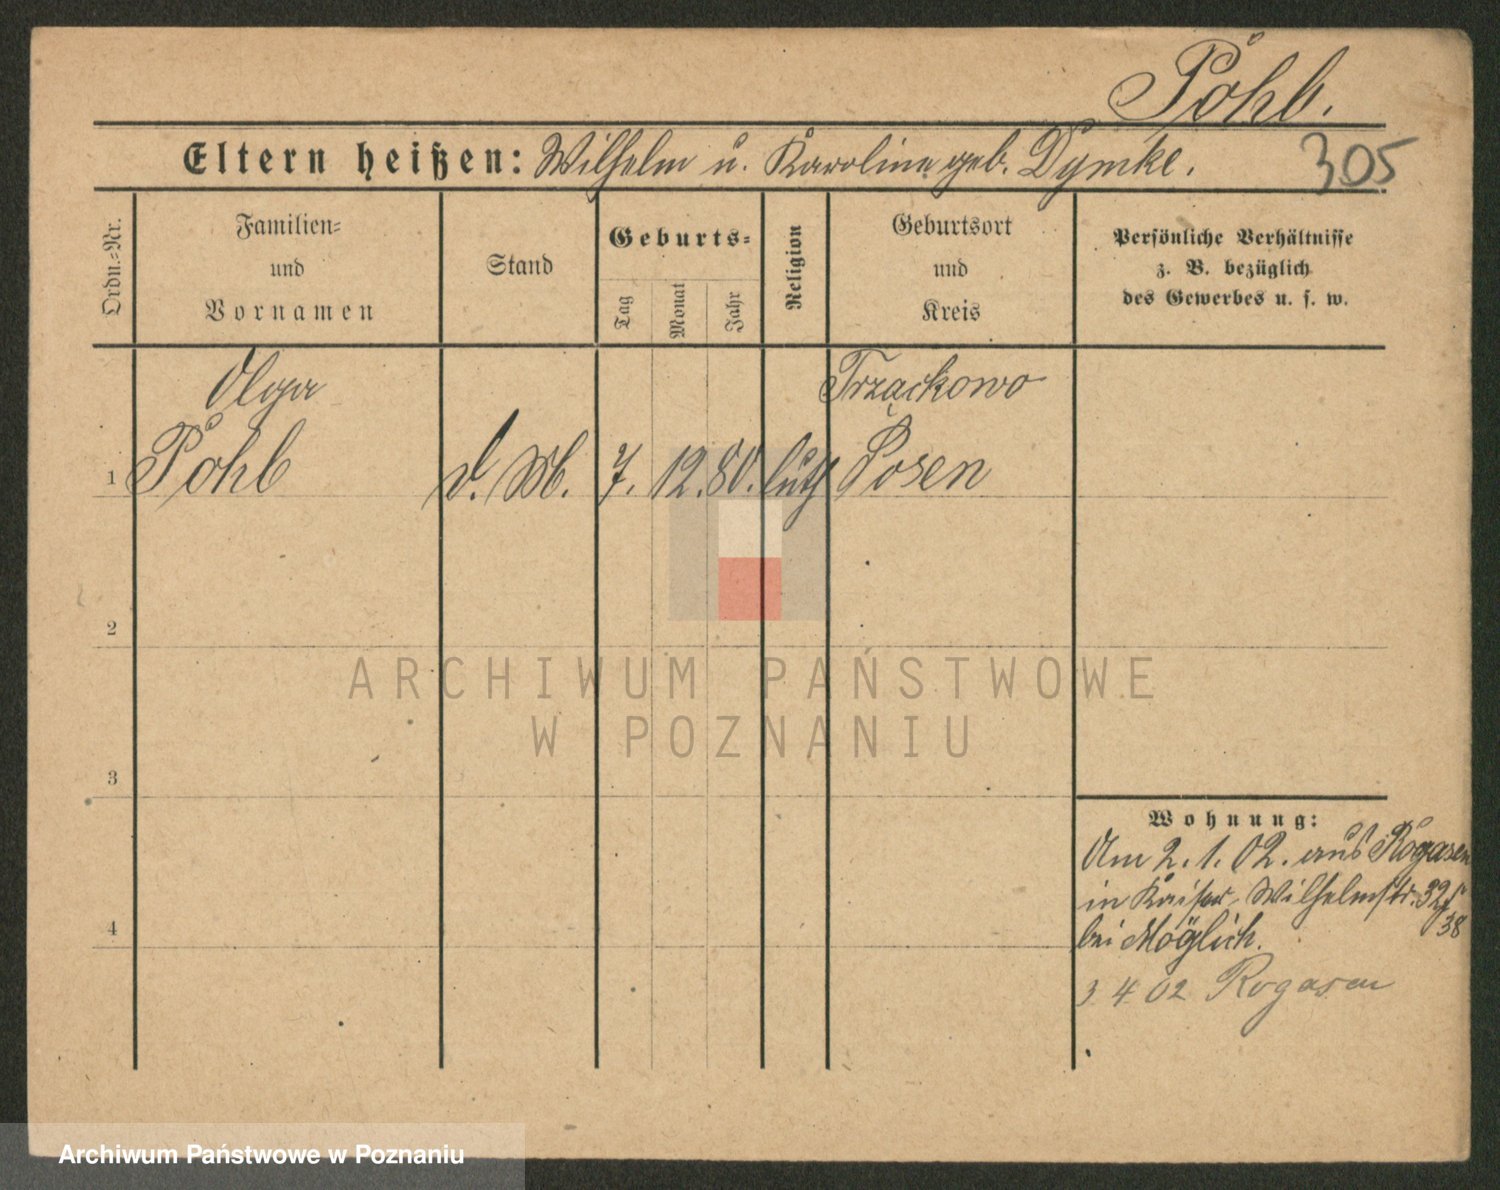 Pohl.
Eltern heißen: Wilhelm u. Karoline geb. Dymke.
305
Ordn.-Nr.
Familien-
und
Vornamen
Stand
Geburts-
Tag
Monat
Jahr
Religion
Geburtsort
und
Kreis
Persönliche Verhältnisse
z. B. bezüglich
des Gewerbes u. s. w.
Olga Trząckowo
1 Pohl d. M. 7. 12. 80. luth Posen
2
3
4
Wohnung:
Am 2. 1. 02. aus Rogasen
in Kaiser Wilhelmstr. 32/38
bei Möglich.
3 4 02 Rogasen
ARCHIWUM PAŃSTWOWE
W POZNANIU
Archiwum Państwowe w Poznaniu